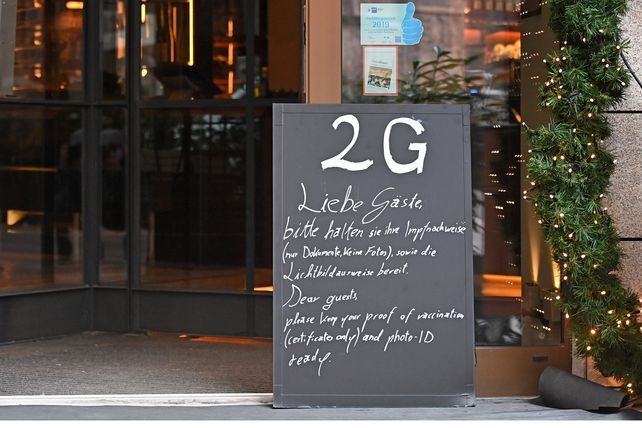 2019
2G
Liebe Gäste,
bitte halten sie ihre Impfnachweise
(nur Dokumente, keine Fotos), sowie die
Lichtbildausweise bereit.
Dear guests,
please keep your proof of vaccination
(certificates only) and photo-ID
ready.